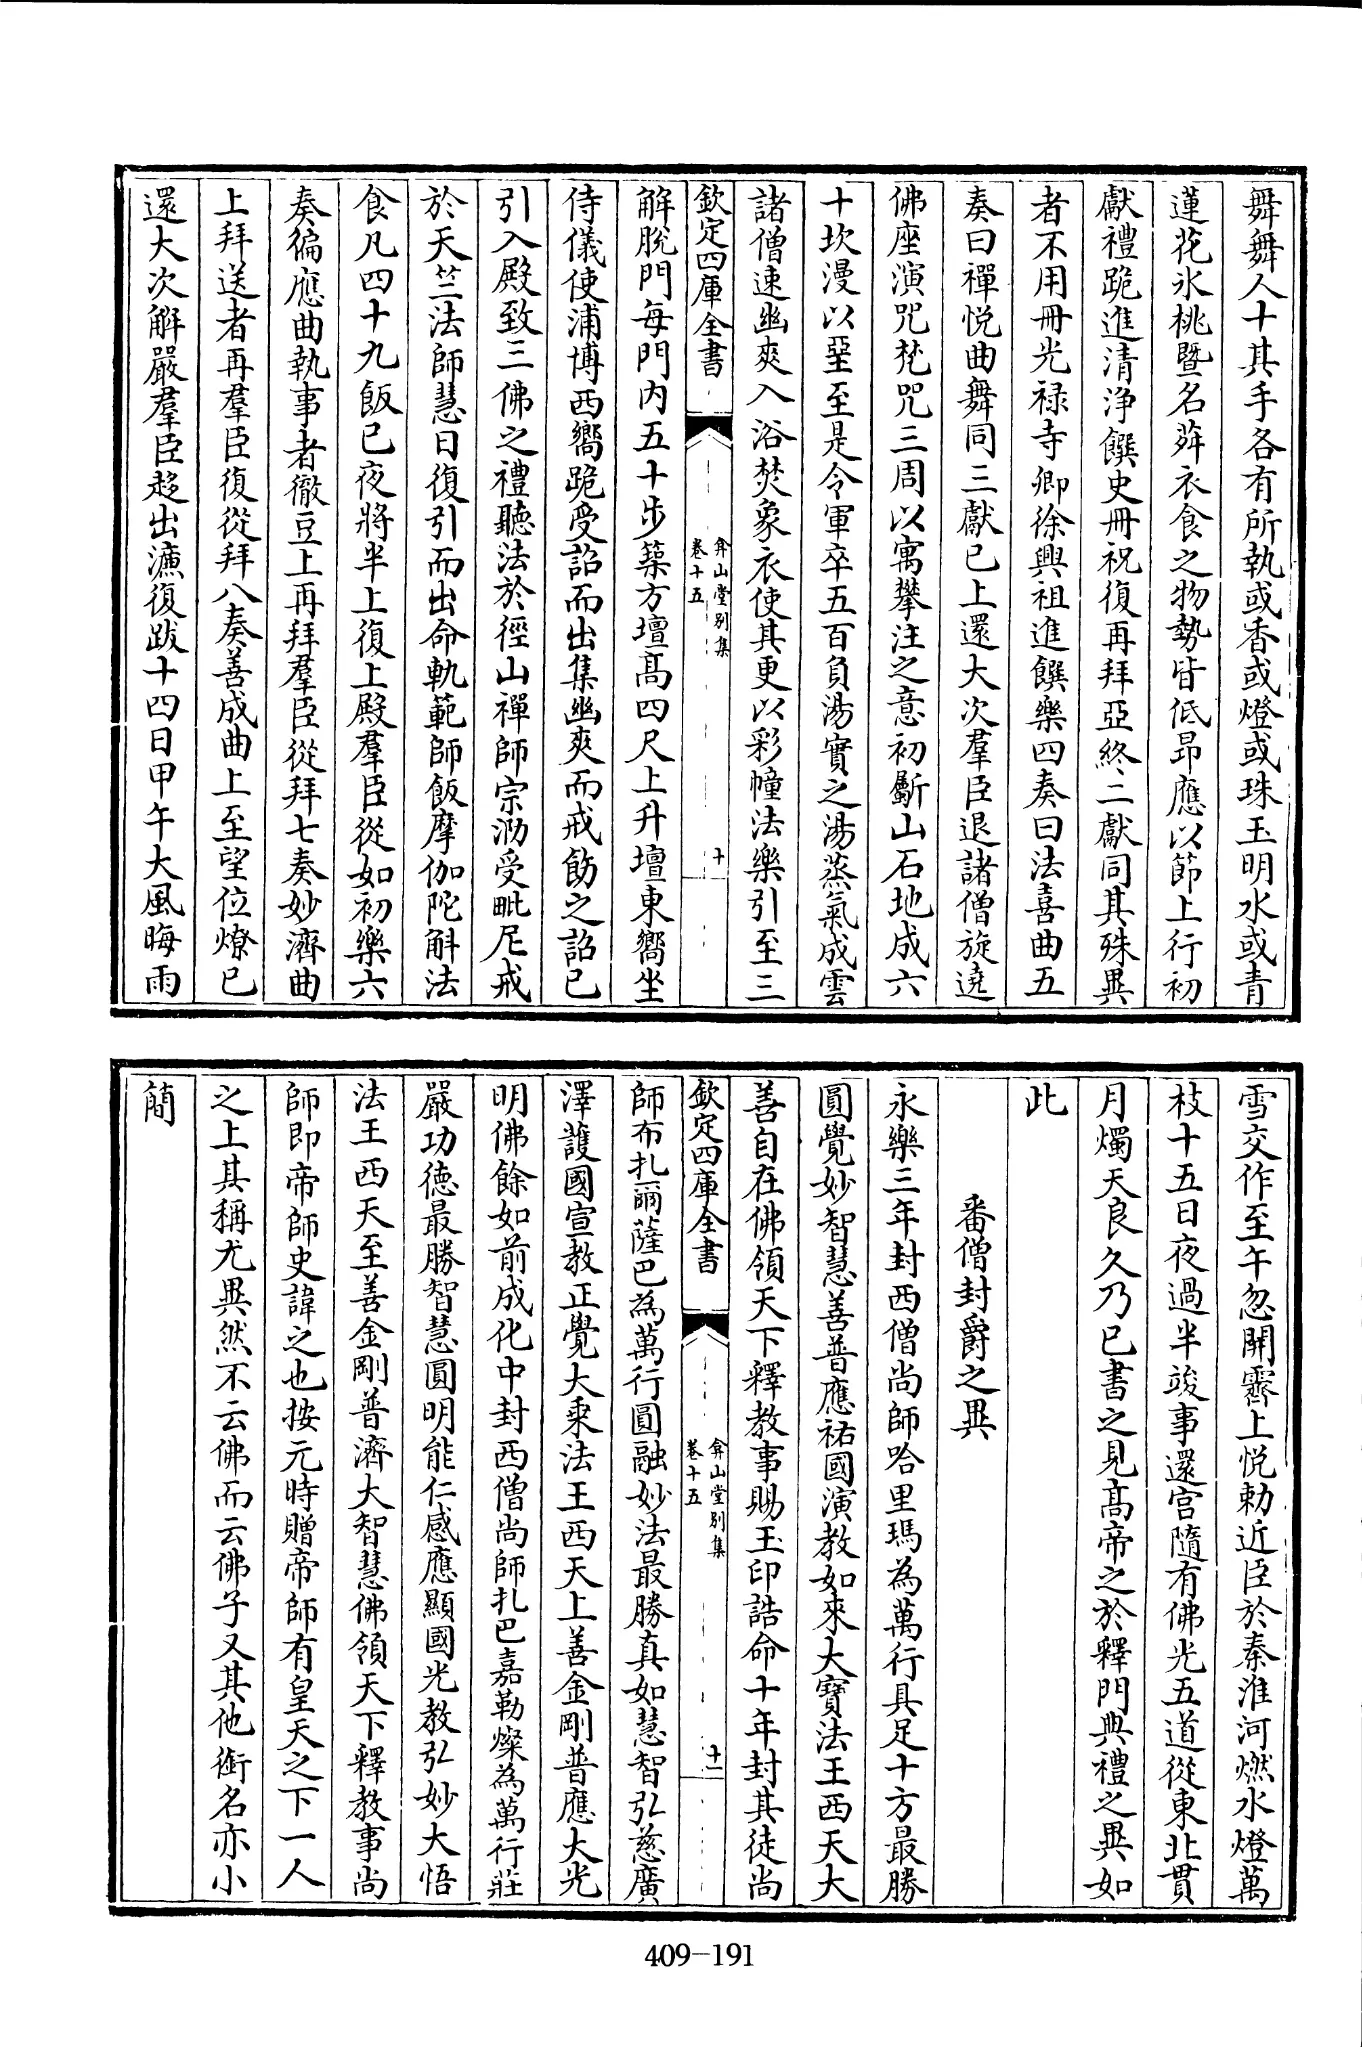 舞舞人十其手各有所執或香或燈或珠玉明水或青
蓮花氷桃暨名荈衣食之物勢皆低昻應以節上行初
獻禮跪進清浄饌史冊祝復再拜亞終二獻同其殊異
者不用冊光禄寺卿徐興祖進饌樂四奏曰法喜曲五
奏曰禪悦曲舞同三獻已上還大次羣臣退諸僧旋遶
佛座演咒梵咒三周以寓攀注之意初斸山石地成六
十坎漫以堊至是令軍卒五百負湯實之湯蒸氣成雲
諸僧速幽爽入浴焚象衣使其更以彩幢法樂引至三
欽定四庫全書
弇山堂别集
卷十五
十
解脱門每門内五十步築方壇髙四尺上升壇東嚮坐
侍儀使浦博西嚮跪受詔而出集幽爽而戒飭之詔已
引入殿致三佛之禮聽法於徑山禪師宗泐受毗尼戒
於天竺法師慧日復引而出命軌範師飯摩伽陀斛法
食凡四十九飯已夜將半上復上殿羣臣從如初樂六
奏徧應曲執事者徹豆上再拜羣臣從拜七奏妙濟曲
上拜送者再羣臣復從拜八奏善成曲上至望位燎已
還大次解嚴羣臣趍出濂復跋十四日甲午大風晦雨
雪交作至午忽開霽上悦勅近臣於秦淮河燃水燈萬
枝十五日夜過半竣事還宫隨有佛光五道從東北貫
月燭天良久乃已書之見髙帝之於釋門典禮之異如
此
番僧封爵之異
永樂三年封西僧尚師哈里瑪為萬行具足十方最勝
圓覺妙智慧善普應祐國演教如來大寳法王西天大
善自在佛領天下釋教事賜玉印誥命十年封其徒尚
欽定四庫全書
弇山堂别集
卷十五
十一
師布扎爾薩巴為萬行圓融妙法最勝真如慧智弘慈廣
澤護國宣教正覺大乘法王西天上善金剛普應大光
明佛餘如前成化中封西僧尚師扎巴嘉勒燦為萬行莊
嚴功德最勝智慧圓明能仁感應顯國光教弘妙大悟
法王西天至善金剛普濟大智慧佛領天下釋教事尚
師即帝師史諱之也按元時贈帝師有皇天之下一人
之上其稱尤異然不云佛而云佛子又其他銜名亦小
簡
409-191